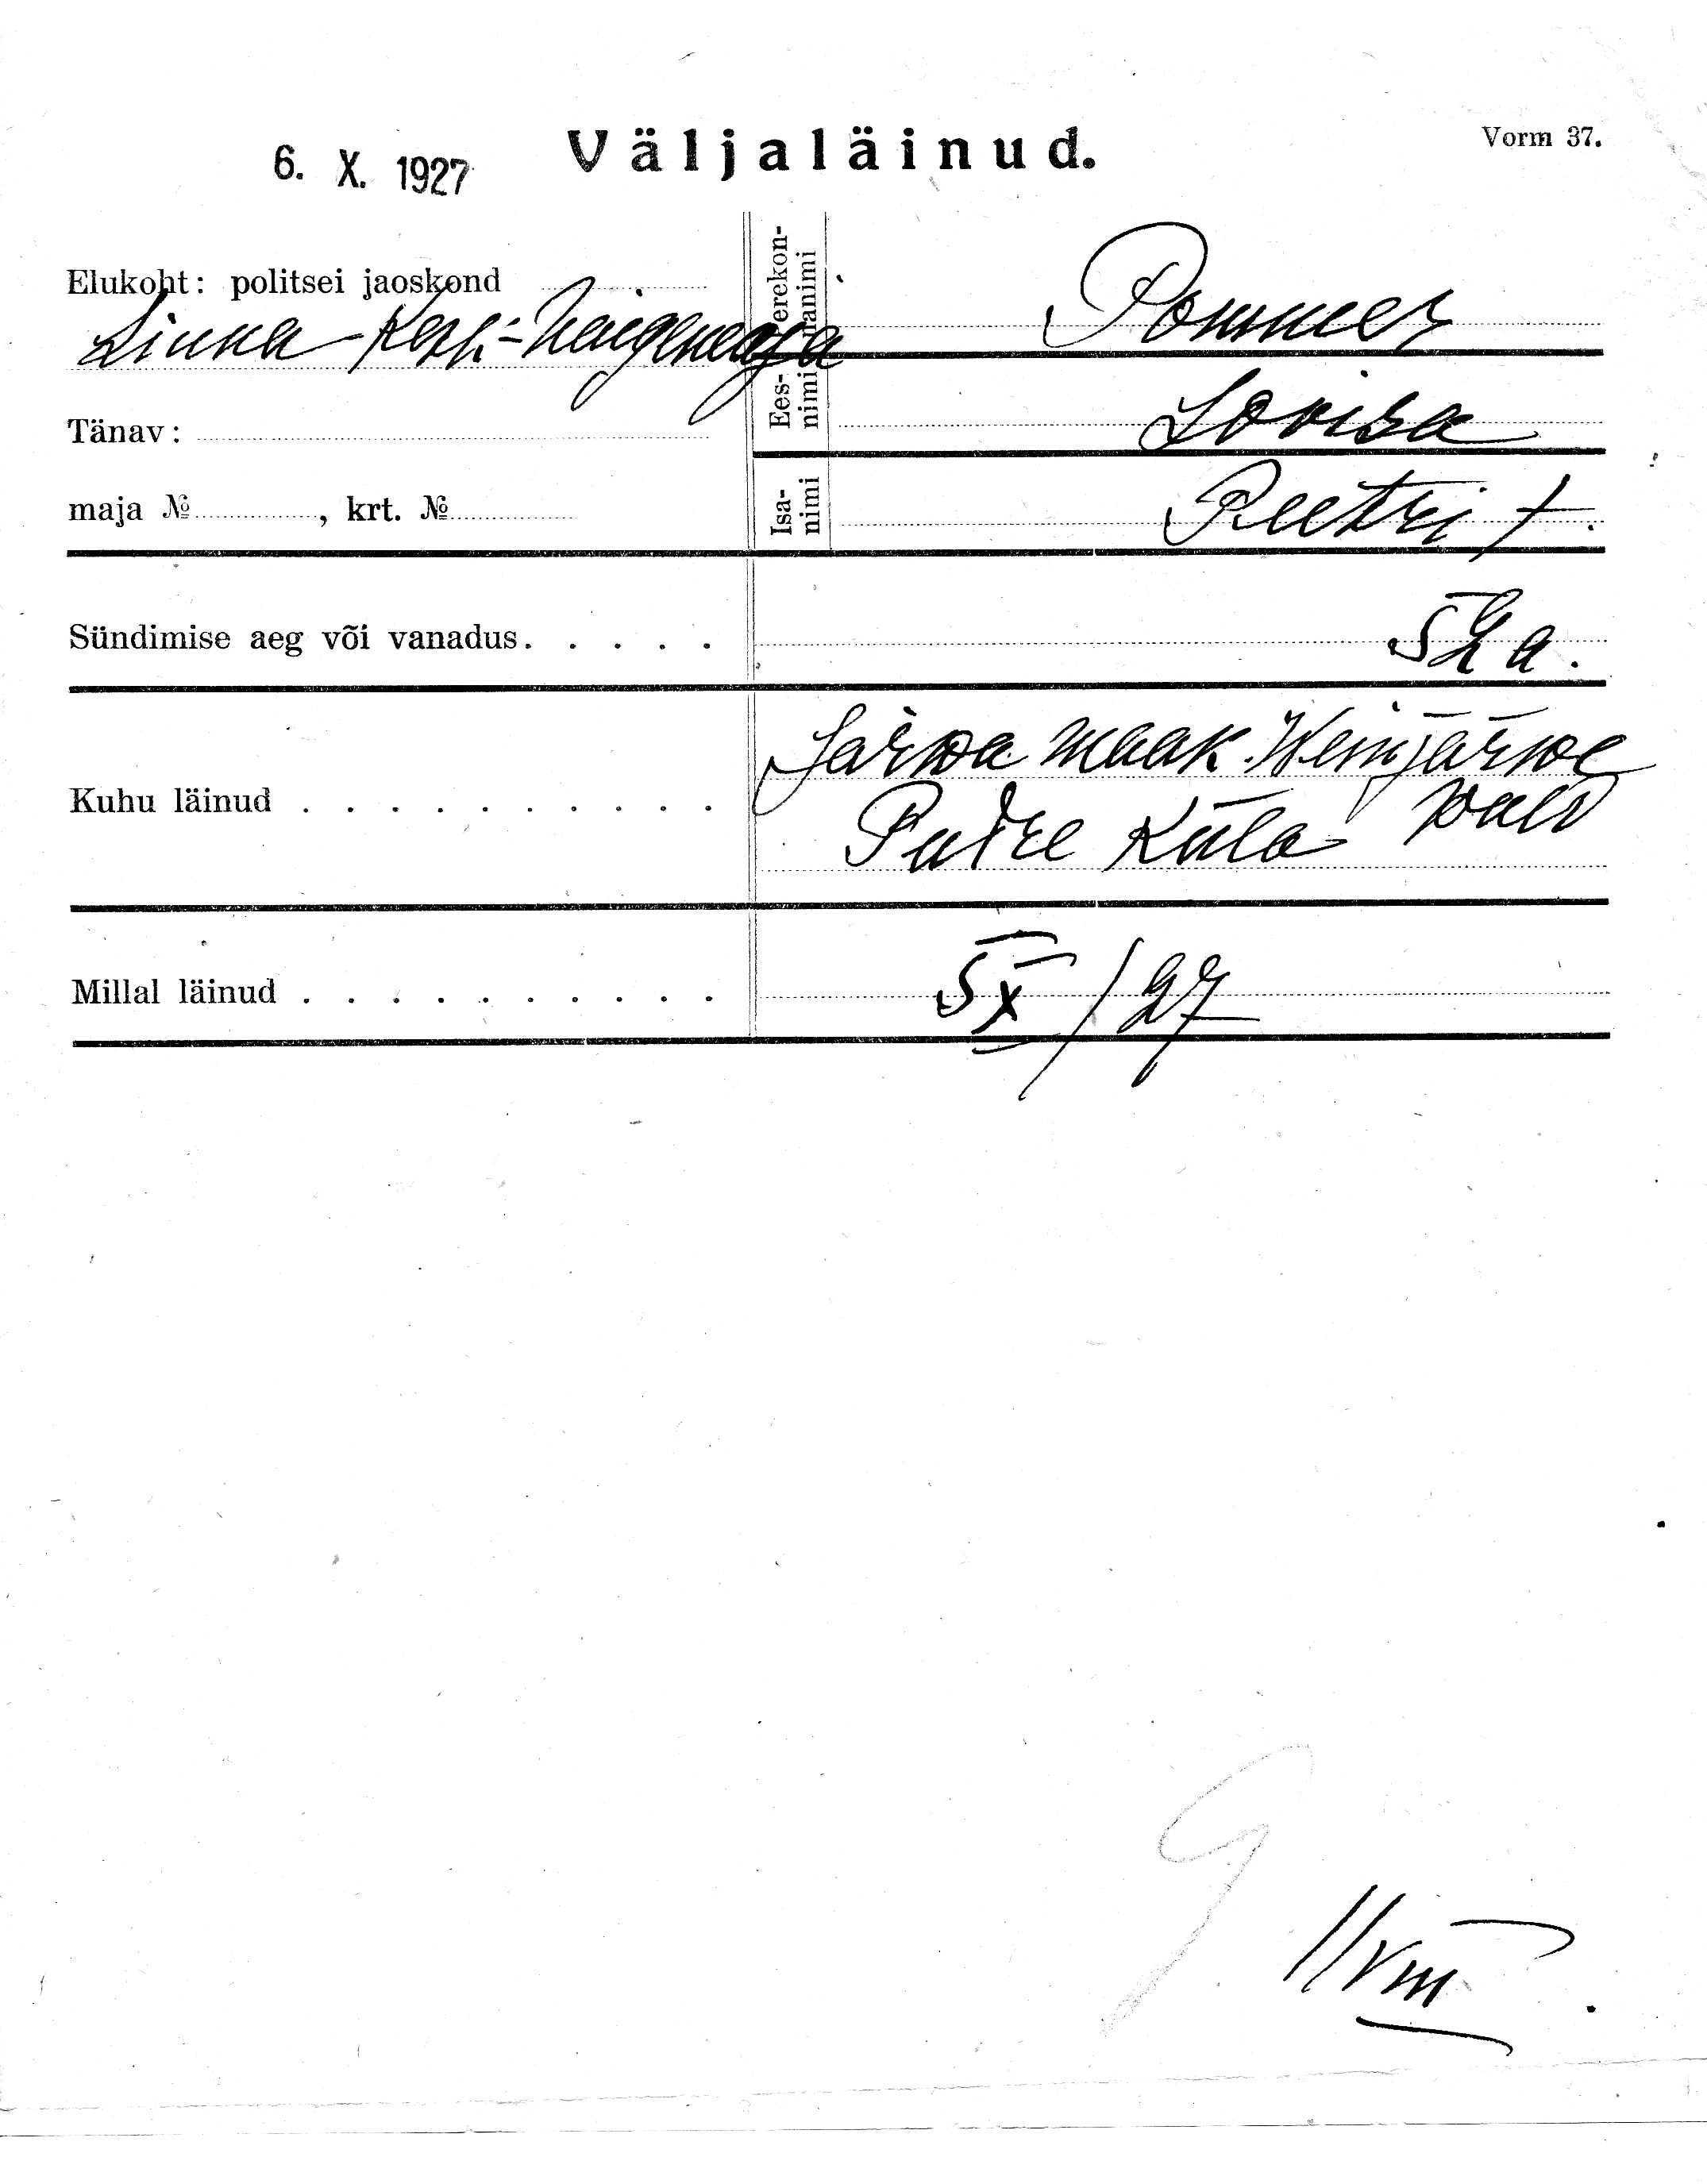 6. X. 1927
Väljaläinud.
Vorm 37.
Elukoht: politsei jaoskond
Linna-Kesk-haigemaja
Tänav:
maja №, krt. №
Perekon-
nanimi
Pommer
Ees-
nimi
Lovisa
Isa-
nimi
Peetri t.
Sündimise aeg või vanadus.....
52 a.
Kuhu läinud..........
Järwa maak. Weinjärwe
Putre Küla wald
Millal läinud..........
5 X / 27